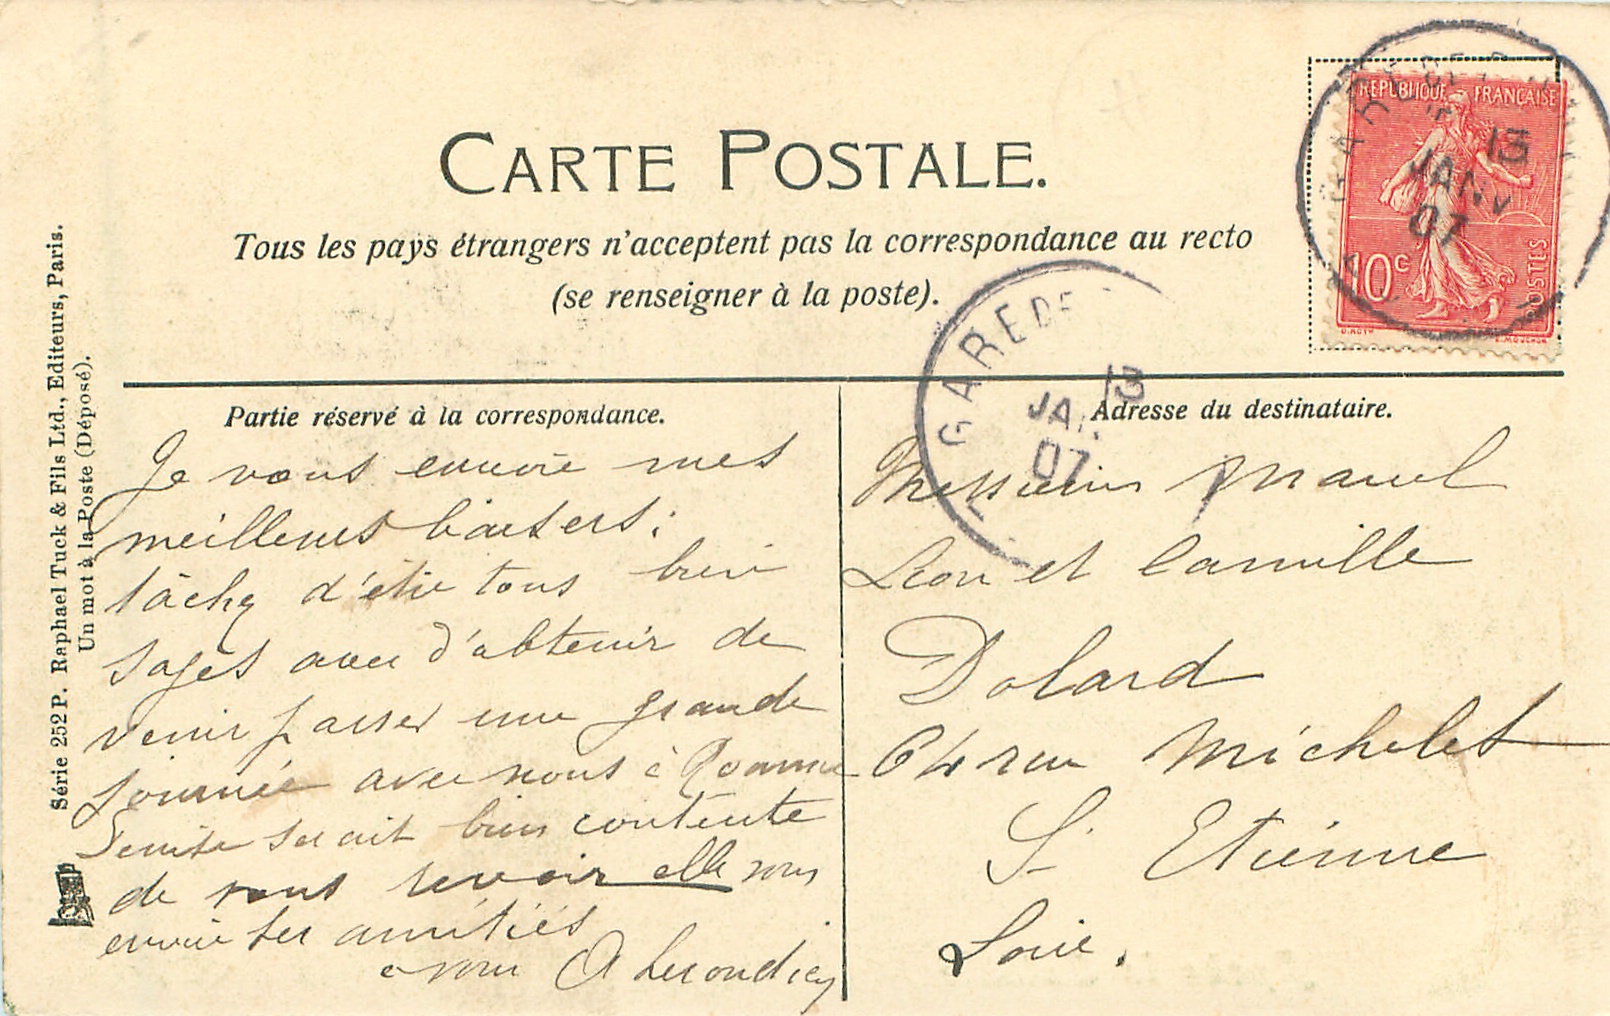 CARTE POSTALE.
Tous les pays étrangers n'acceptent pas la correspondance au recto
(se renseigner à la poste).
REPUBLIQUE FRANÇAISE
10c
POSTES
O.ROTY
E.MOUCHON
GARE DE
13
JANV
07
GARE DE
13
JAN
07
Série 252 P. Raphael Tuck & Fils Ltd., Editeurs, Paris.
Un mot à la Poste (Déposé).
Partie réservé à la correspondance.
Je vous envoie mes
meilleurs baisers;
tâchez d'étre tous bien
sages avec d'obtenir de
venir passer une grande
journée avec nous à Roanne
Denise serait bien contente
de vous revoir elle vous
envoie ses amitiés
à vous A
Adresse du destinataire.
Messieurs Marcel
Léon et Camille
Dolard
64 rue Michelet
St Etienne
Loire.